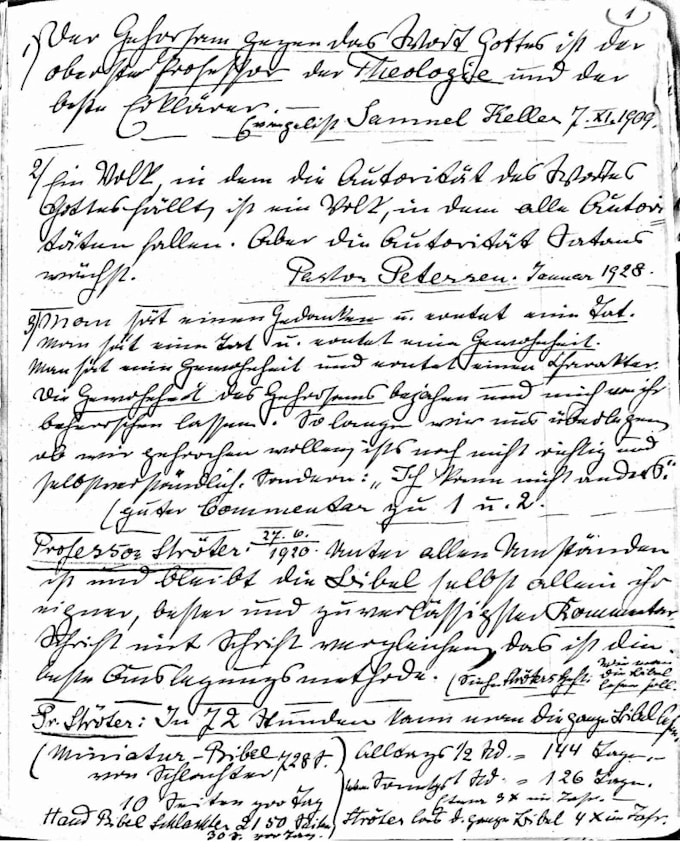 1
1) Der Gehorsam gegen das Wort Gottes ist der
oberste Professor der Theologie und der
beste Erklärer. —
Evangelist Samuel Keller 7. XI. 1909.
2) Ein Volk, in dem die Autorität des Wortes
Gottes fällt, ist ein Volk, in dem alle Autori-
täten fallen. Aber die Autorität Satans
wächst. Pastor Petersen. Januar 1928.
3) Man sät einen Gedanken u. erntet eine Tat.
Man sät eine Tat u. erntet eine Gewohnheit.
Man sät eine Gewohnheit und erntet einen Charakter.
Die Gewohnheit des Gehorsams bejahen und mich von ihr
beherrschen lassen. So lange wir uns überlegen,
ob wir gehorchen wollen, ists noch nicht richtig und
selbstverständlich. Sondern: „Ich kann nicht anders."
(guter Commentar zu 1 u. 2.
Professor Ströter: 27.6. 1920. Unter allen Umständen
ist und bleibt die Bibel selbst allein ihr
eigner, bester und zuverlässigster Kommentar.
Schrift mit Schrift vergleichen, das ist die
beste Auslegungsmethode. (Siehe Ströters Heft: Wie man
die Bibel
lesen soll.
Pr. Ströter: In 72 Stunden kann man die ganze Bibel lesen,
(Miniatur-Bibel 1728 S.) Alltags 1/2 Std. = 144 Tage.—
von Schlachter Sonntags 1 Std. = 126 Tage.
10 Seiten pro Tag Etwa 3 x im Jahr. —
Hand Bibel Schlachter 2150 Seiten Ströter las d. ganze Bibel 4 x im Jahr.
30 S. pro Tag.